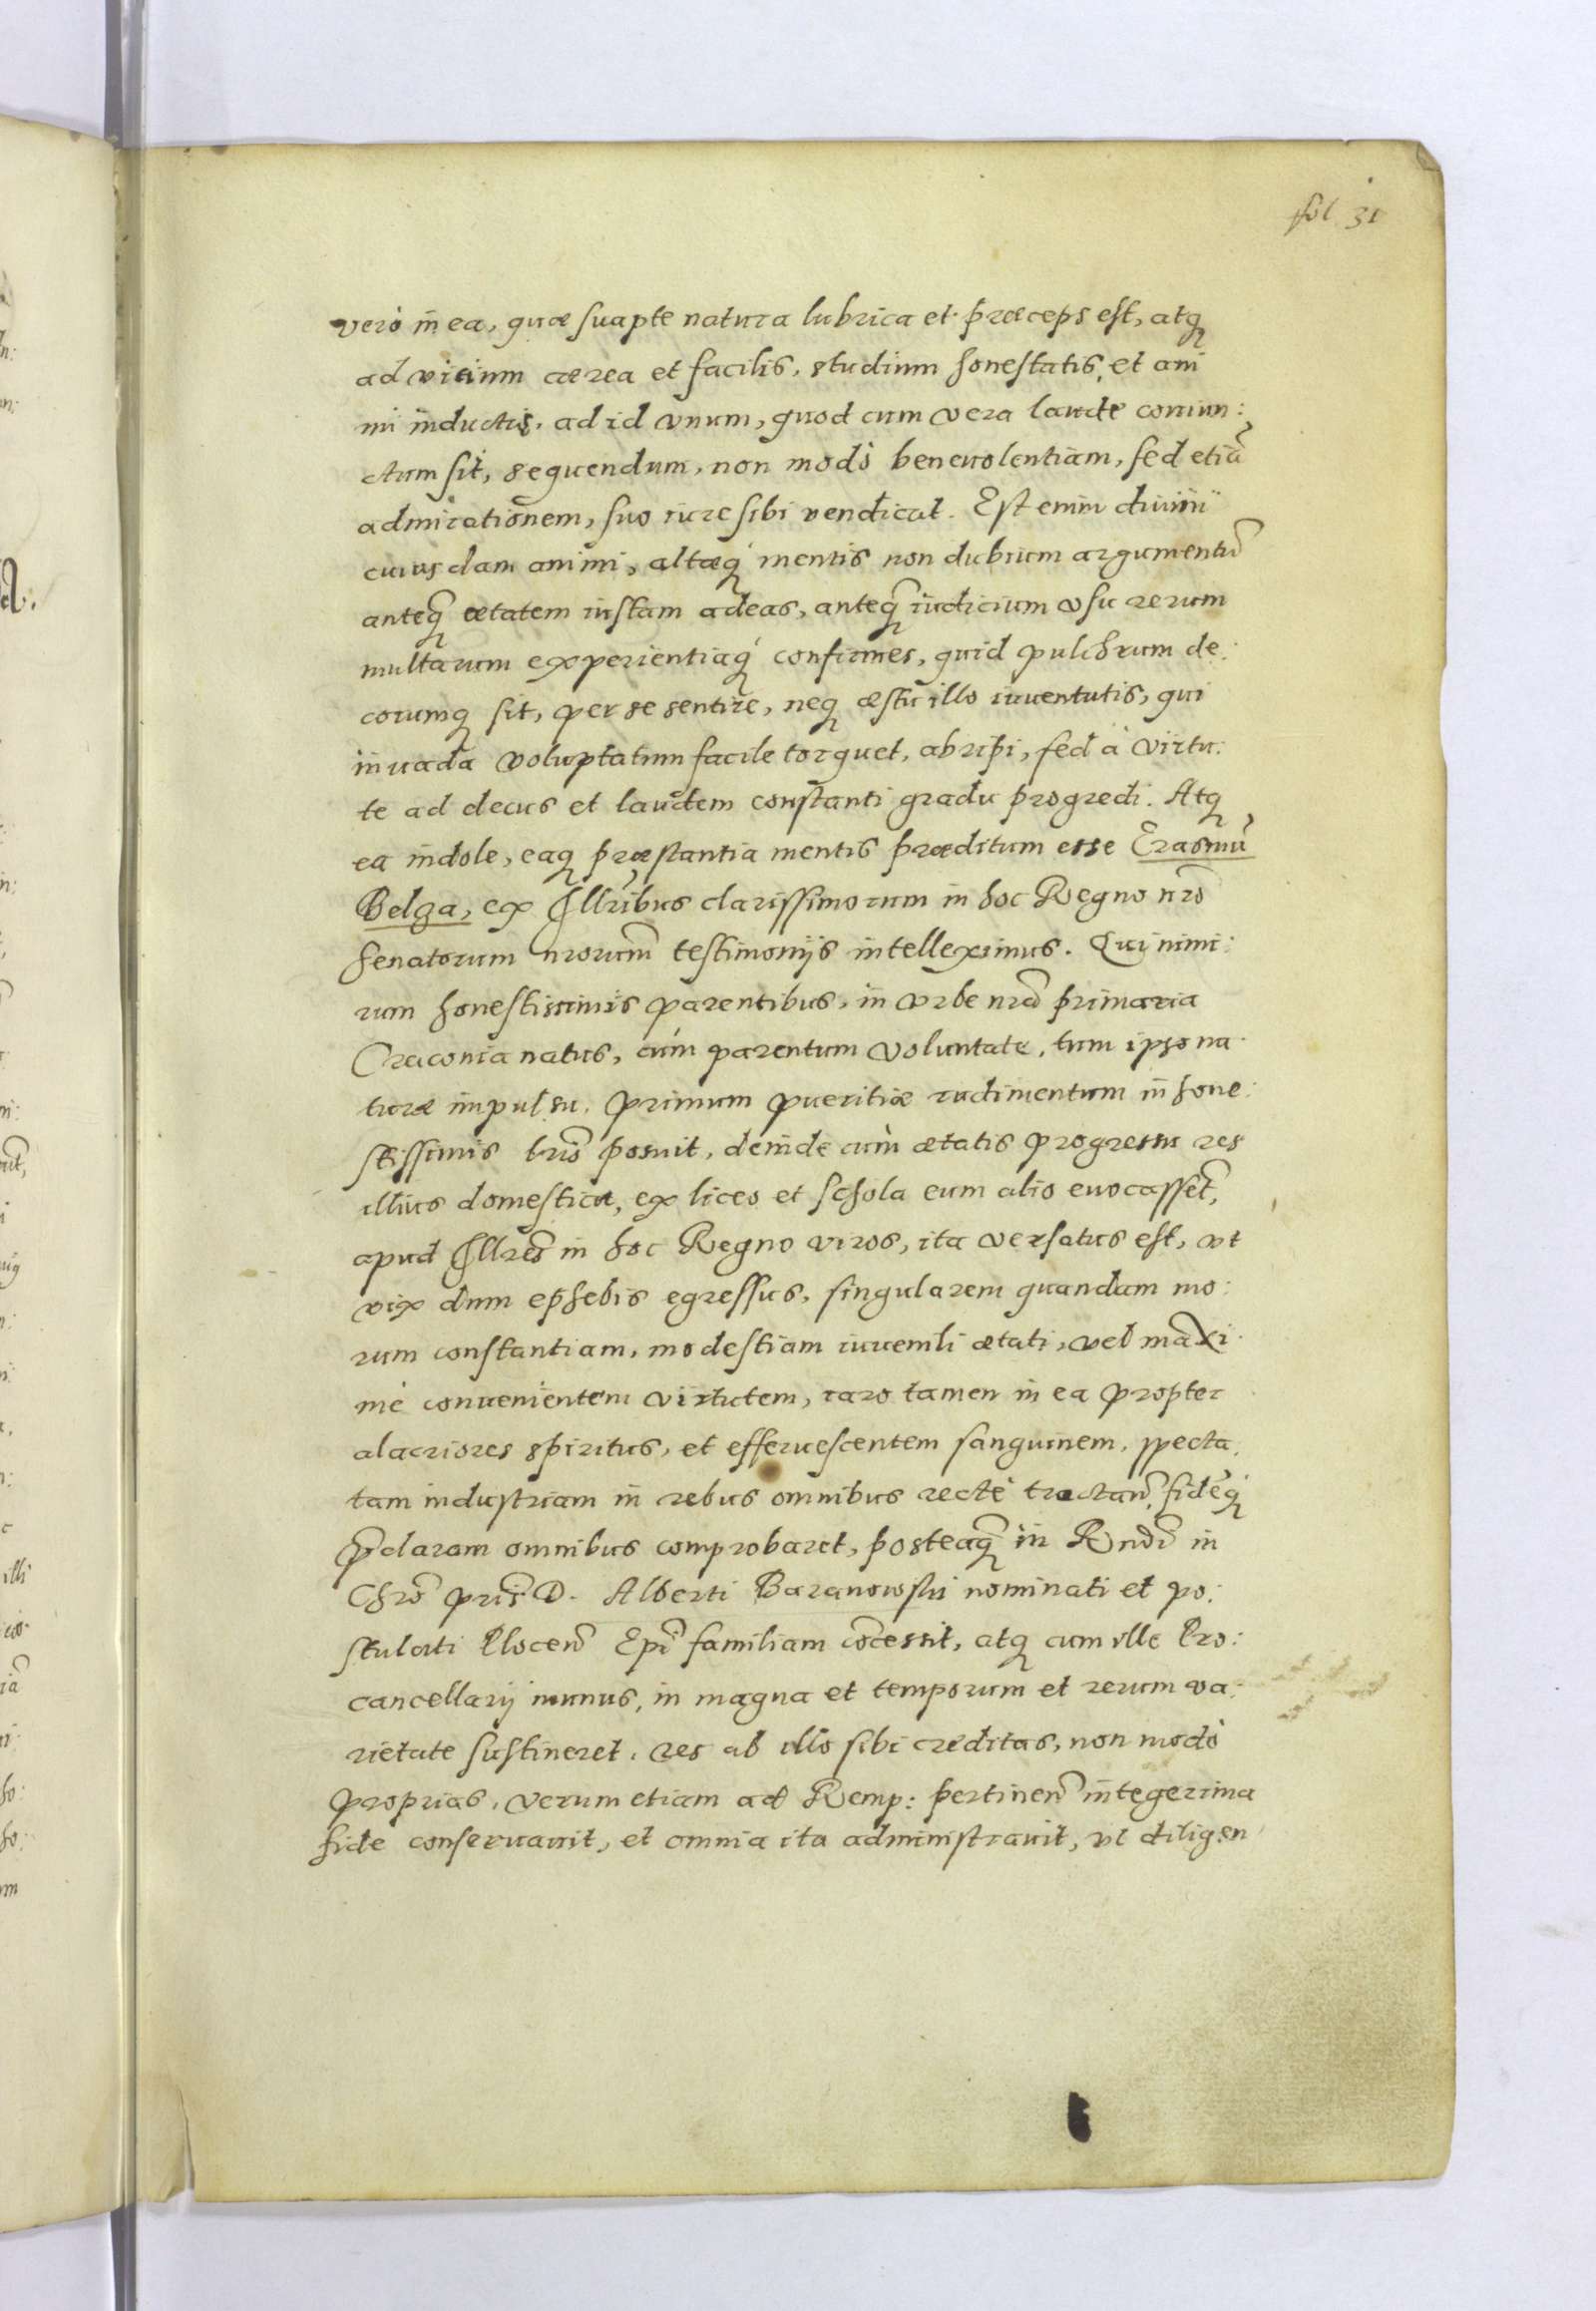 fol 31
vero in ea, quæ suapte natura lubrica et præceps est, atq
ad vitium cærea et facilis, studium honestatis, et ani
mi inductus, ad id vnum, quod cum vera laude coniun:
ctum sit, sequendum, non modò benevolentiam, sed etiã
admirationem, suo iure sibi vendicat. Est enim diuini
cuiusdam animi, altæq mentis non dubium argumentũ
anteq̃ ætatem iustam adeas, anteq̃ iudicium vsu rerum
multarum experientiaq́ confirmes, quid pulchrum de:
corumq sit, per se sentire, neq æstu illo iuventutis, qui
in vada voluptatum facile torquet, abripi, sed à virtu:
te ad decus et laudem constanti gradu progredi. Atq
ea indole, eaq præstantia mentis præditum esse Erasmũ
Belga, ex Illribus clarissimorum in hoc Regno nr̃o
Senatorum nrorum̃ testimonijs intelleximus. Qui nimi:
rum honestissimis parentibus, in vrbe nrã primaria
Craconia natus, cùm parentum voluntate, tum ipso na
turæ impulsu, primum pueritiæ rudimentum in hone:
stissimis lrĩs posuit, deinde cùm ætatis progressu res
illius domesticæ, ex liceo et schola eum alio euocassẽt,
apud Illrẽs in hoc Regno viros, ita versatus est, vt
vix dum ephebis egressus, singularem quandam mo:
rum constantiam, modestiam iuuenili ætati, vel maxi
mè conuenientem virtutem, raro tamen in ea propter
alacriores spiritus, et efferuescentem sanguinem, specta
tam industriam in rebus omnibus rectè tractañ, fidẽq́
p̃claram omnibus comprobaret, posteaq̃ in Rndĩ in
Chrõ pris̃ D. Alberti Baranowski nominati et po:
stulati Plocen̄ Epĩ familiam cõcessit, atq cum ille Pro:
cancellarij munus, in magna et temporum et rerum va:
rietate sustineret, res ab illo sibi creditas, non modò
proprias, verum etiam ad Remp: pertinen̄ integerima
fide conseruauit, et omnia ita administrauit, vt diligen